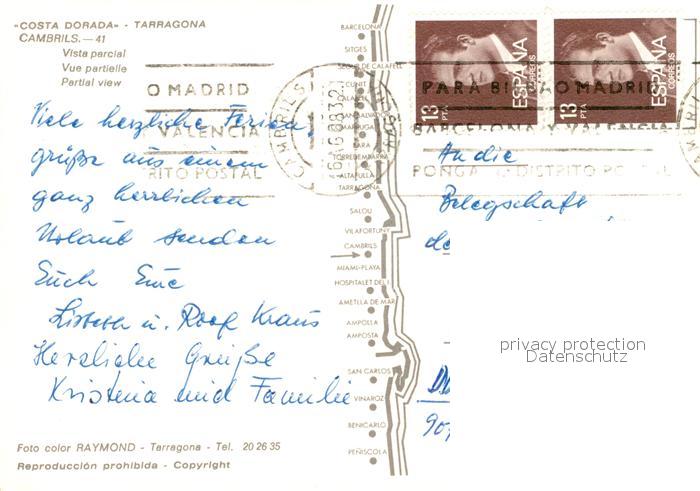 «COSTA DORADA» - TARRAGONA
CAMBRILS.—41
Vista parcial
Vue partielle
Partial view
Viele herzliche Ferien
grüße aus einem
ganz herrlichen
Urlaub senden
Euch Eure
Lisbeth u. Kraus
Herzliche Grüße
Kristina und Familie
Foto color RAYMOND - Tarragona - Tel. 20 26 35
Reproducción prohibida - Copyright
BARCELONA
SITGES
SEGUR DE CALAFELL
CUNIT
TORREDEMBARRA
ALTAFULLA
TARRAGONA
SALOU
VILAFORTUNY
CAMBRILS
MIAMI-PLAYA
HOSPITALET DEL I.
AMETLLA DE MAR
AMPOLLA
AMPOSTA
SAN CARLOS
VINAROZ
BENICARLO
PEÑISCOLA
O MADRID
VALENCIA
RITO POSTAL
CAMBRILS
13 PTA
ESPAÑA
CORREOS
13 PTA
ESPAÑA
CORREOS
PARA BILBAO MADRID
BARCELONA Y VALENCIA
PONGA DISTRITO POSTAL
An die
Belegschaft
privacy protection
Datenschutz